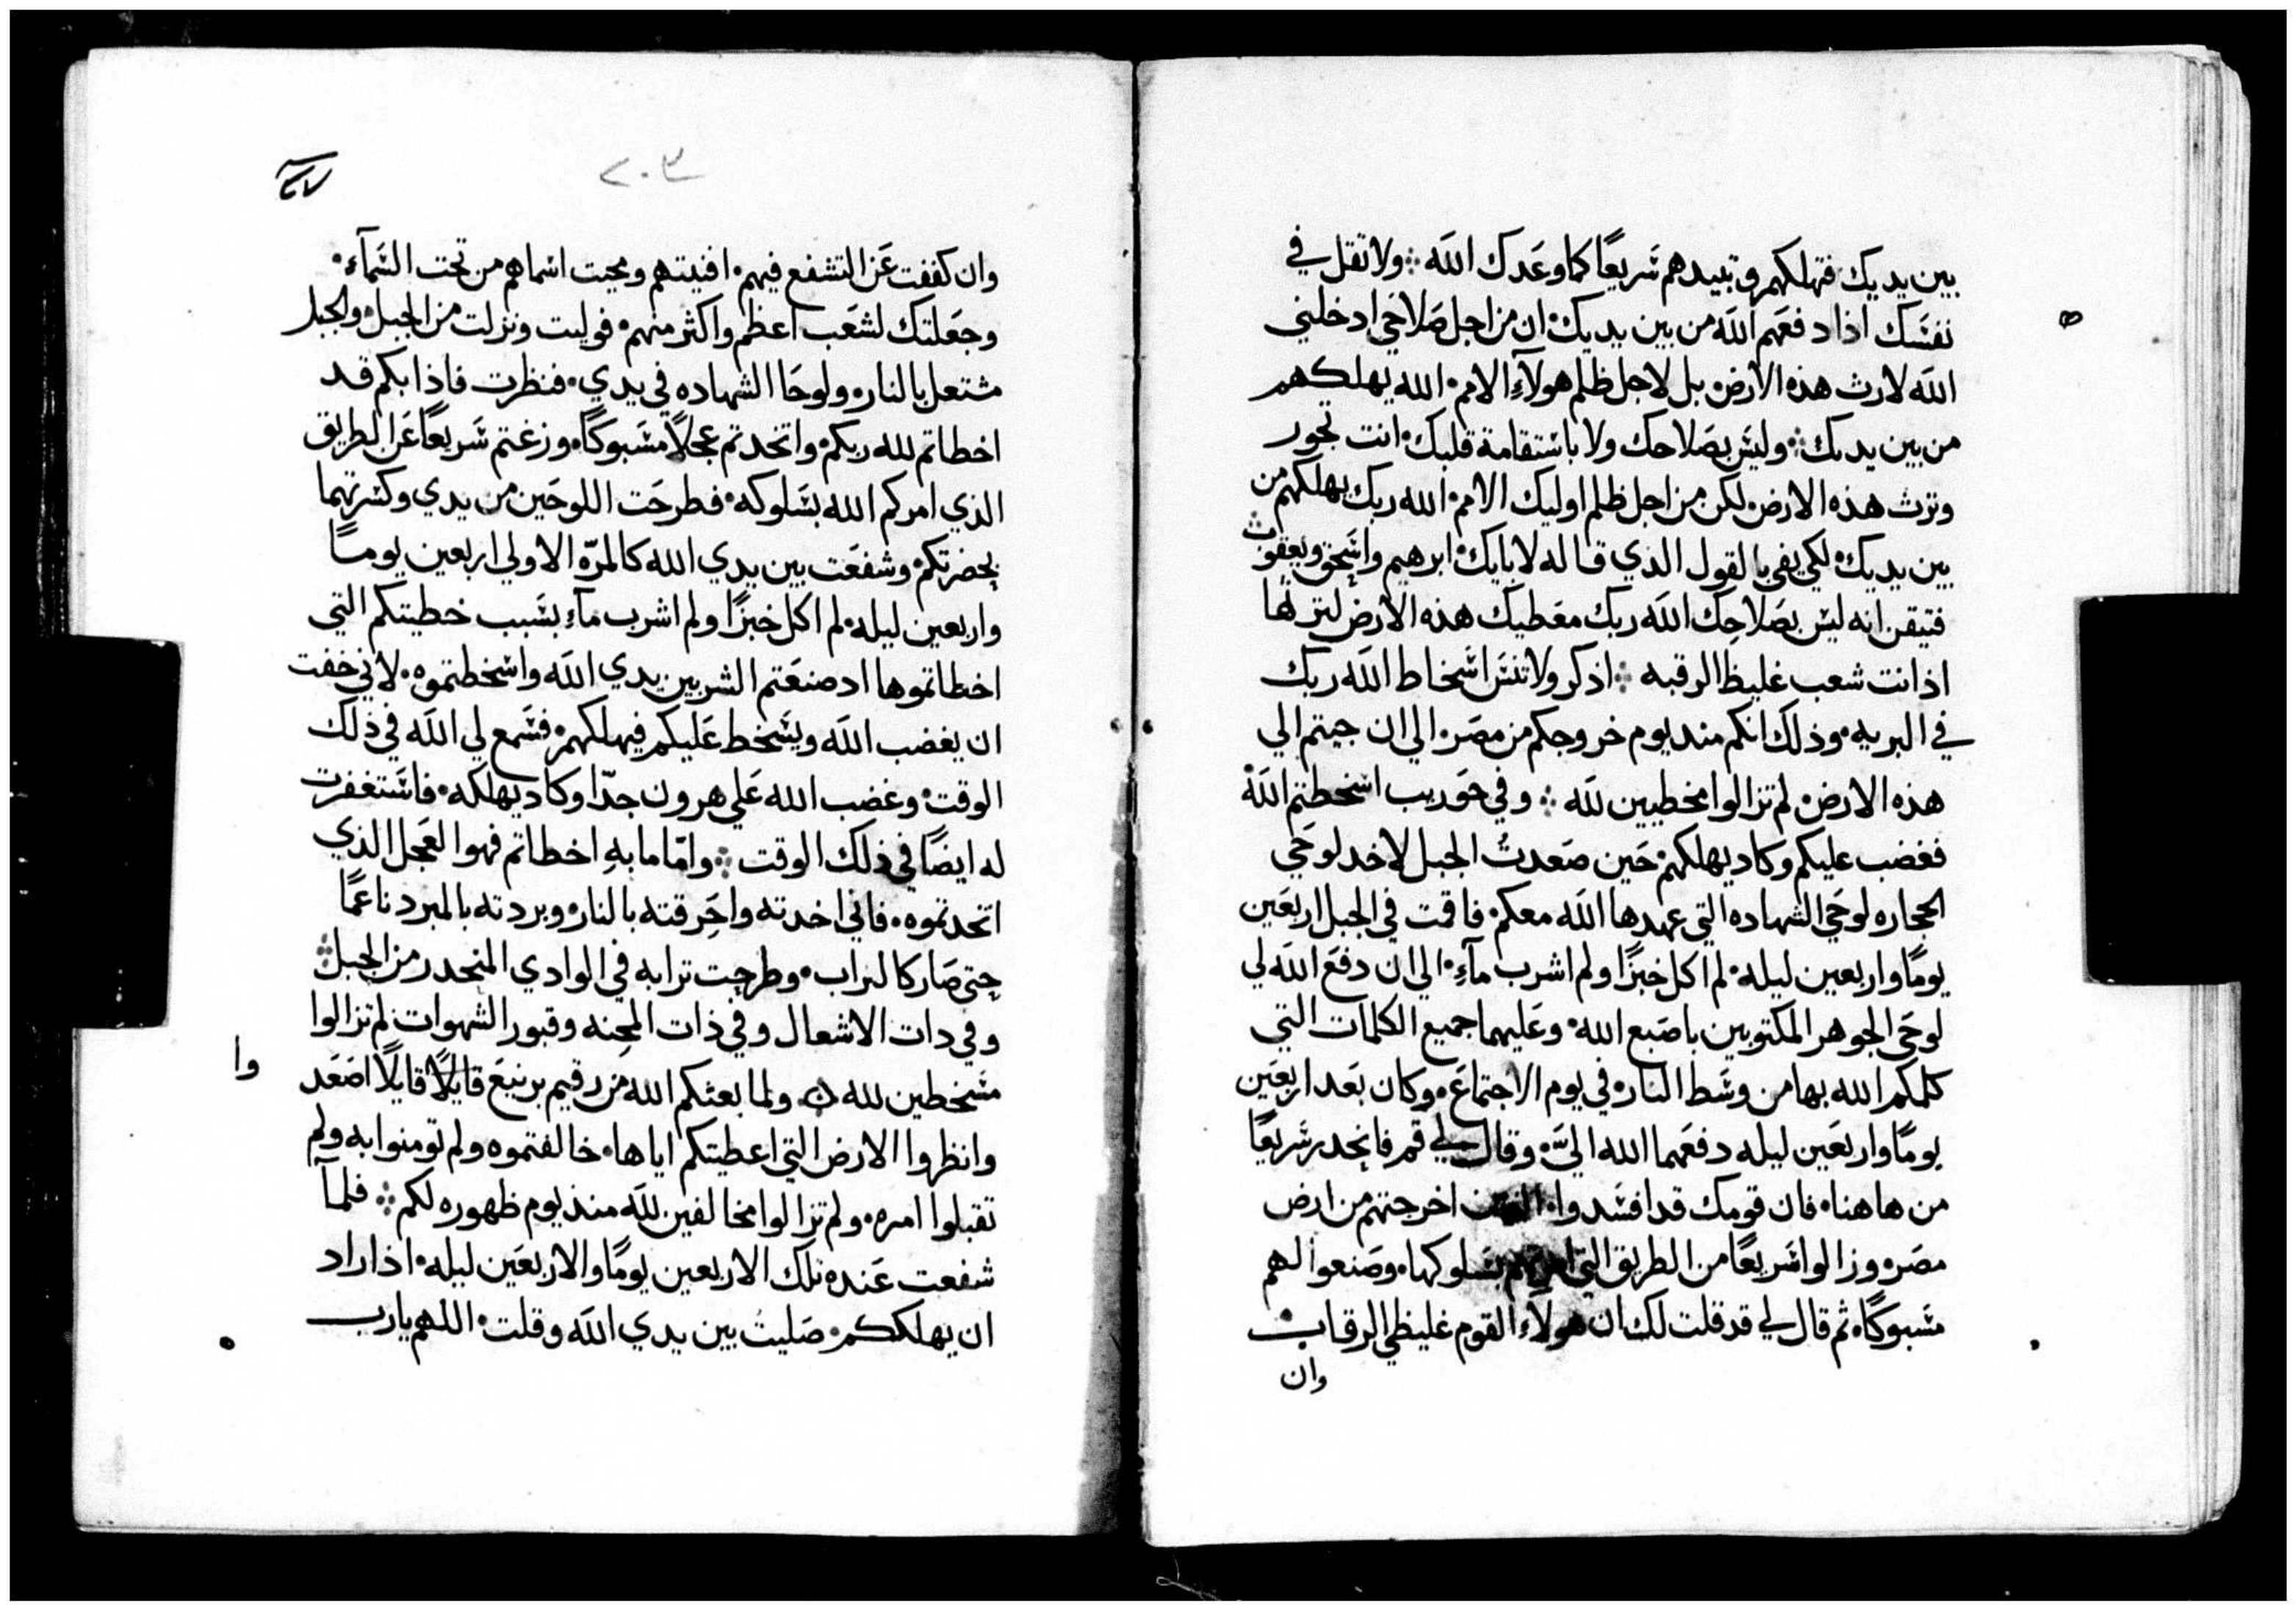 بين يديك فتهلكهم وتبيدهم سَريعًا كما وعَدك الله ܀ ولا تقل في
نفسَك اذا دفعَهم الله من بين يديك٠ ان من اجل صَلاحَي ادخلني
الله لارث هذه الارض٠ بل لاجل ظلم هولآءِ الامم٠ الله يهلكهم
من بين يديك ܀ وليسَ بصَلاحك ولا باستقامة قلبك٠ انت تجوز
وترث هذه الارض٠ لكن من اجل ظلم اوليك الامم٠ الله ربك يهلكهم من
بين يديك٠ لكي يفي بالقول الذي قاله لابايك٠ ابرهيم واسَحق ويعقوب ܀
فتيقن انه ليس بصَلاحِك الله ربك معَطيك هذه الارض لترثها
اذ انت شعب غليظ الرقبه ܀ اذكر ولا تنسَ اسَخاط الله ربك
في البريه٠ وذلك انكم مند يوم خروجكم من مصَر٠ الي ان جيتم الي
هذه الارض٠ لم تزالوا مخطيين لله ܀ وفي حَوريب اسخطتم الله
فغضب عليكم وكاد يهلكهم٠ حَين صَعدتُ الجبل لاخد لوحَي
الحجاره لوحَي الشهاده التي عهدها الله معكم٠ فاقمت في الجبل اربعَين
يومًا واربعين ليله٠ لم اكل خبزًا ولم اشرب مآءِ٠ الي ان دفعَ الله لي
لوحَي الجوهر المكتوبين باصَبع الله٠ وعَليهما جميع الكلمات التي
كلمكم الله بها من وسَط النار٠ في يوم الاجتماعَ٠ وكان بَعد اربعَين
يومًا واربعَين ليله دفعَهما الله اليَّ٠ وقال لي قم فانحِدر سَريعًا
من هاهنا٠ فان قومك قد افسَدوا٠ اخرجتهم من ارض
مصَر٠ وزالوا سَريعًا من الطريق التي امرتهم بسَلوكها٠ وصَنعوا لهم
مسَبوكًا٠ ثم قال لي قد قلت لك ان هولآءِ القوم غليظي الرقاب
وان
٢٠٣
وان كففت عَن التشفع فيهم٠ افنيتهم ومحيت اسَماهم من تحت السَمآءِ٠
وجعَلتك لشعَب اعظم واكثر منهم٠ فوليت ونزلت من الجبل٠ والجبل
مشتعل بالنار٠ ولوحَا الشهاده في يدي٠ فنظرت فاذا بكم قد
اخطاتم لله ربكم٠ واتخدتم عجلاً مسَبوكًا٠ وزغتم سَريعًا عَن الطريق
الذي امركم الله بسَلوكه٠ فطرحَت اللوحَين من يدي وكسَرتهما
بحِضرتكم٠ وشفعَت بين يدي الله كالمرّه الاولي اربعين يومًا
واربعين ليله٠ لم اكل خبزًا ولم اشرب مآءِ بسَبب خطيتكم التي
اخطاتموها اد صنعَتم الشر بين يدي الله واسَخطتموه٠ لاني خفت
ان يغضب الله ويسَخط عَليكم فيهلكهم٠ فسَمع لي الله في ذلك
الوقت٠ وغضب الله عَلي هرون جدّا وكاد يهلكه٠ فاسَتغفرت
له ايضًا في ذلك الوقت ܀ وامّا ما بهِ اخطاتم فهوا العَجل الذي
اتخدتموه٠ فاني اخدته واحَرقته بالنار٠ وبردته بالمبرد ناعمًا
حِتي صَار كالتراب٠ وطرحِت ترابه في الوادي المنحِدر من الجبل ܀
وفي دات الاشعال وفي ذات المحِنه وقبور الشهوات لم تزالوا
مسَخطين لله ܀ ولما بعثكم الله من رقيم برنيعَ قايلاً قايلاً اصَعَد
وا
وانظروا الارض التي اعطيتكم اياها٠ خالفتموه ولم تومنوا به ولم
تقبلوا امره٠ ولم تزالوا مخالفين لله منذ يوم ظهوره لكم ܀ فلمآ
شفعت عَنده تلك الاربعين يومًا والاربعَين ليله٠ اذ اراد
ان يهلككم٠ صَليتُ بين يدي الله وقلت٠ اللهم يارب